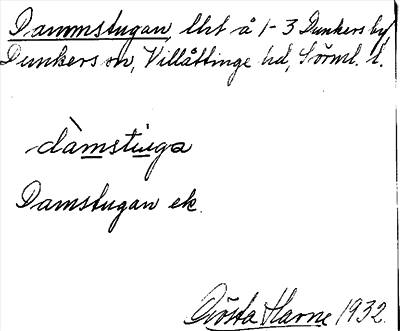 Dammstugan, lht å 1-3 Dunkers by,
Dunkers sn, Villåttinge hd, Sörml. l.
dàmstuga
Damstugan ek.
Gösta Harne 1932.